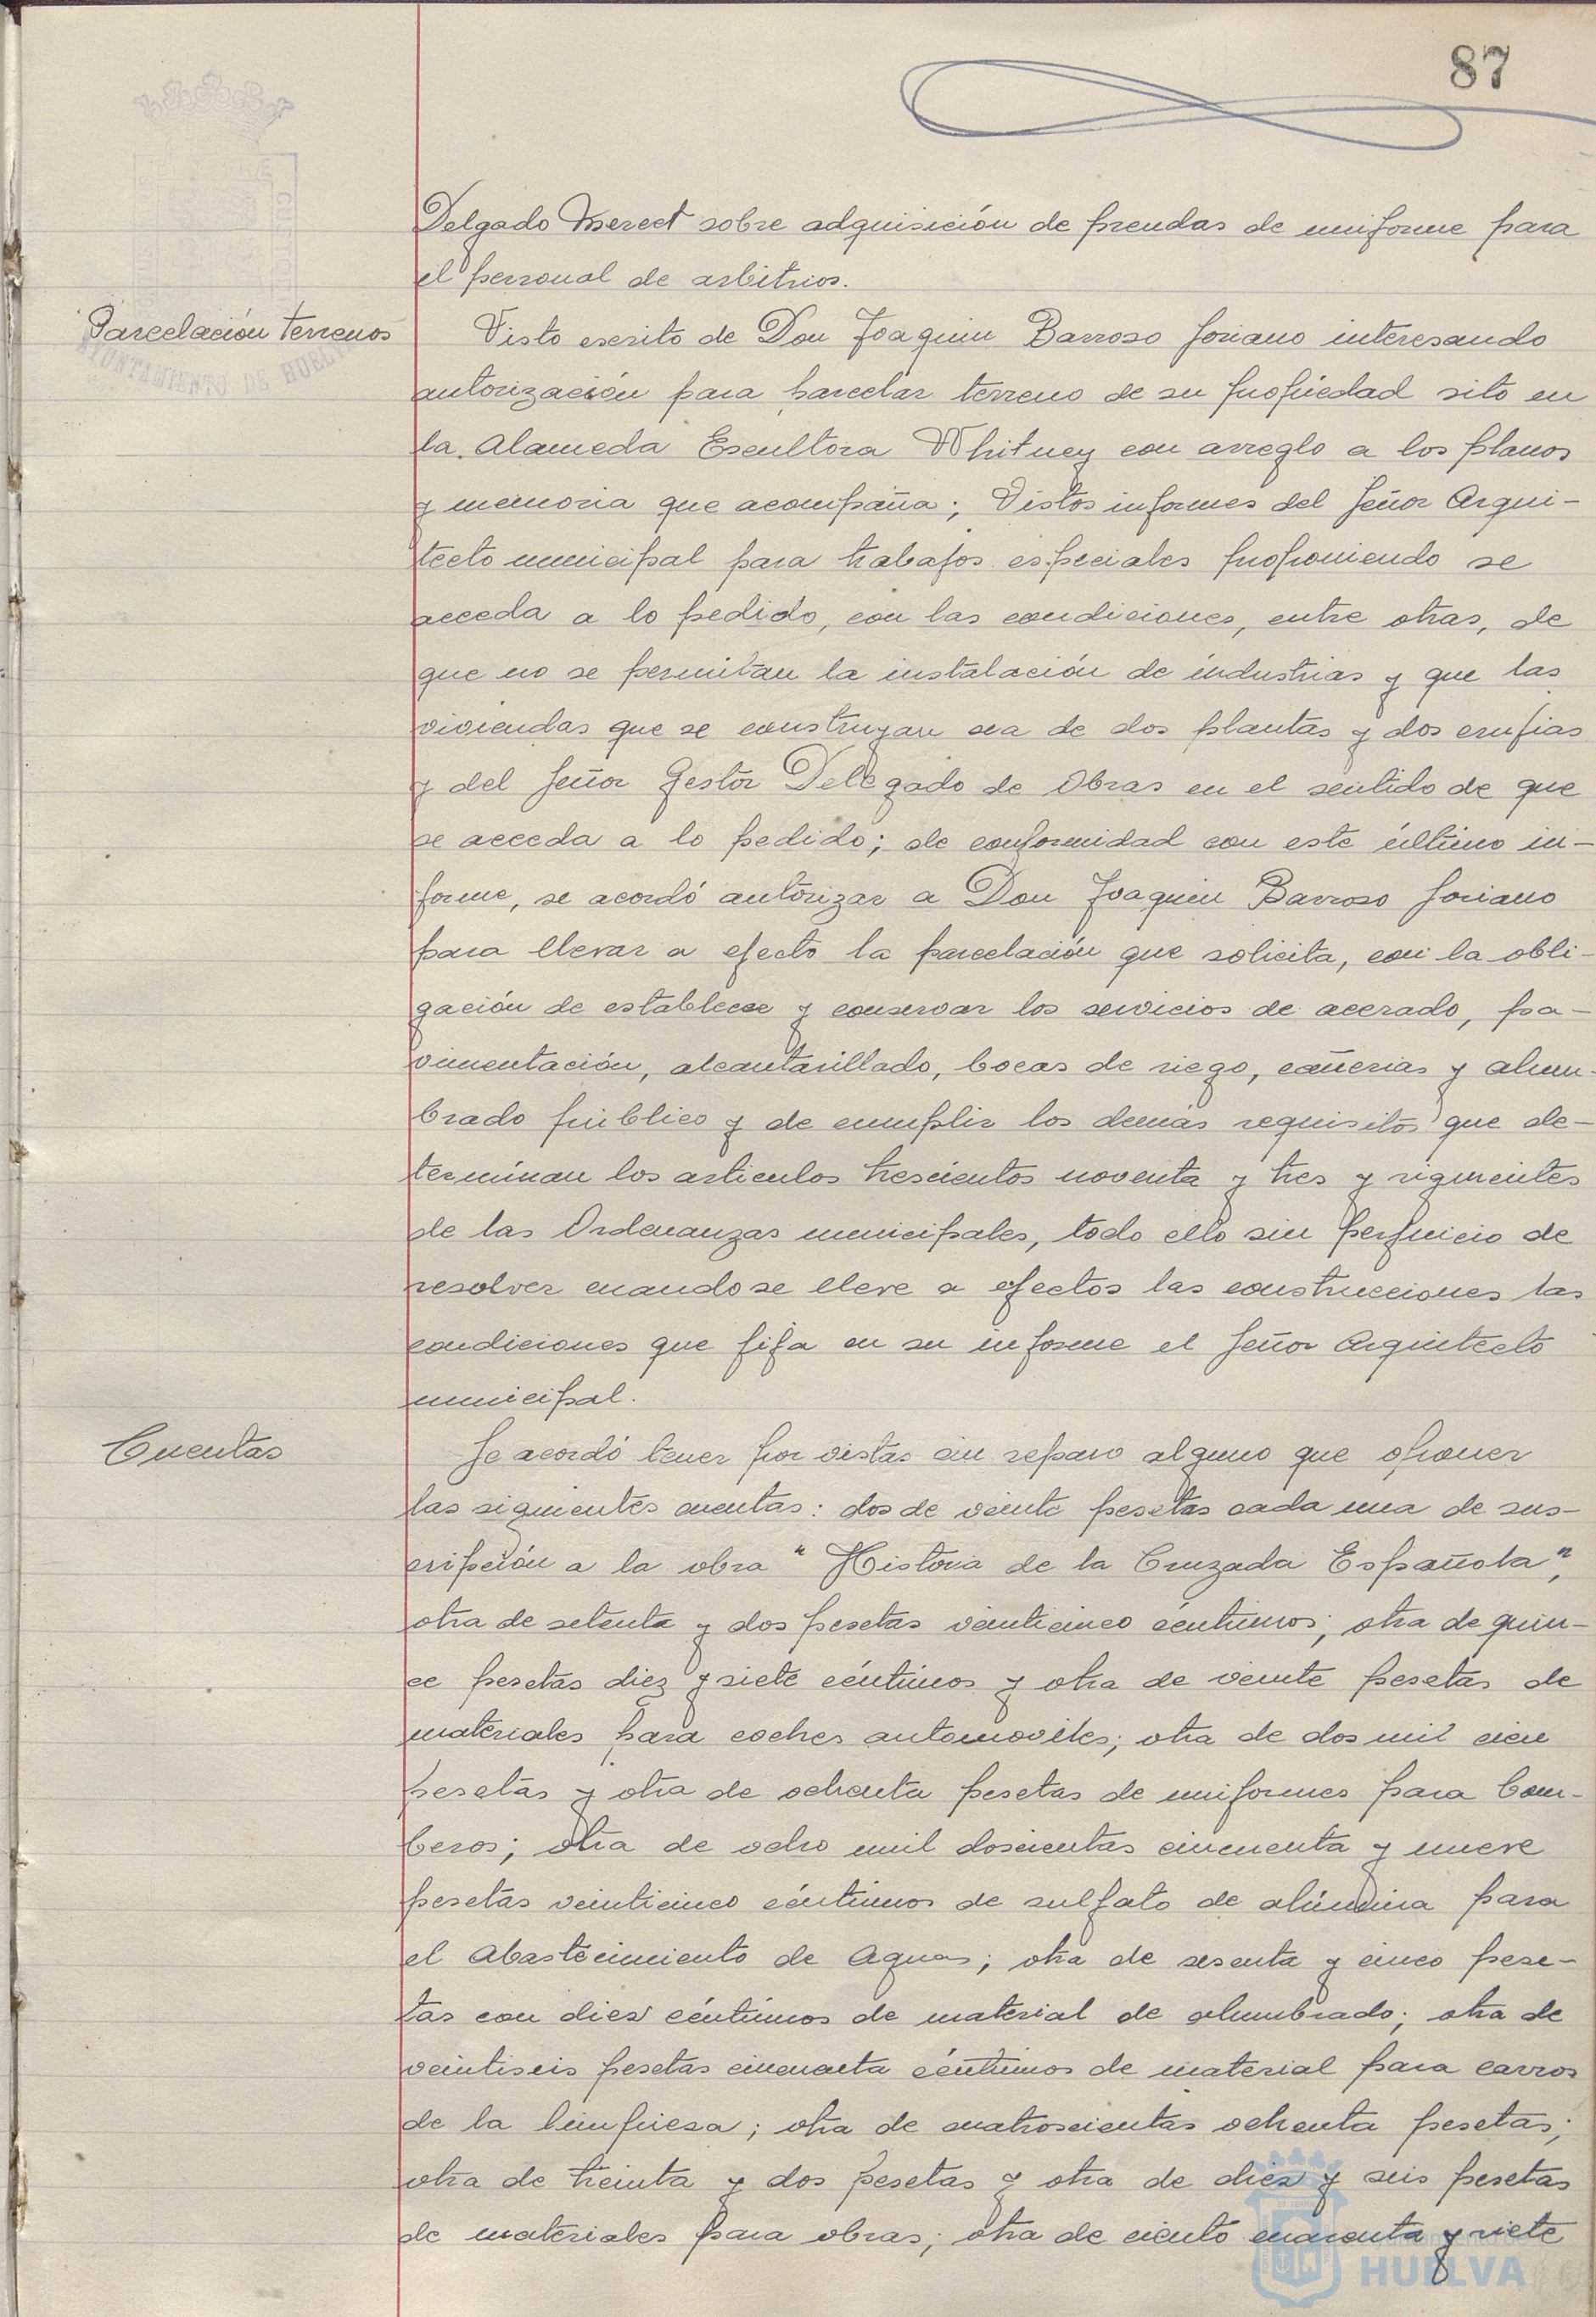 87
Delgado Merect sobre adquisición de prendas de uniforme para
el personal de arbitrios.
Parcelación terrenos
AYUNTAMIENTO DE HUELVA
Visto escrito de Don Joaquin Barroso Soriano interesando
autorización para parcelar terreno de su propiedad sito en
la Alameda Escultora Whitney con arreglo a los planos
y memoria que acompaña; Vistos informes del Señor Arqui-
tecto municipal para trabajos especiales proponiendo se
acceda a lo pedido, con las condiciones, entre otras, de
que no se permitan la instalación de industrias y que las
viviendas que se construyan sea de dos plantas y dos crujias
y del Señor Gestor Delegado de Obras en el sentido de que
se acceda a lo pedido; de conformidad con este último in-
forme, se acordó autorizar a Don Joaquin Barroso Soriano
para llevar a efecto la parcelación que solicita, con la obli-
gación de establecer y conservar los servicios de acerado, pa-
vimentación, alcantarillado, bocas de riego, cañerias y alum-
brado público y de cumplir los demás requisitos que de-
terminan los articulos trescientos noventa y tres y siguientes
de las Ordenanzas municipales, todo ello sin perjuicio de
resolver cuando se lleve a efectos las construcciones las
condiciones que fija en su informe el Señor Arquitecto
municipal.
Cuentas
Se acordó tener por vistas sin reparo alguno que oponer
las siguientes cuentas: dos de veinte pesetas cada una de sus-
cripción a la obra "Historia de la Cruzada Española",
otra de setenta y dos pesetas veinticinco céntimos; otra de quin-
ce pesetas diez y siete céntimos y otra de veinte pesetas de
materiales para coches automoviles; otra de dos mil cien
pesetas y otra de ochenta pesetas de uniformes para Bom-
beros; otra de ocho mil doscientas cincuenta y nueve
pesetas veinticinco céntimos de sulfato de alúmina para
el Abastecimiento de Aguas; otra de sesenta y cinco pese-
tas con diez céntimos de material de alumbrado; otra de
veintiseis pesetas cincuenta céntimos de material para carros
de la limpieza; otra de cuatroscientas ochenta pesetas;
otra de treinta y dos pesetas y otra de diez y seis pesetas
de materiales para obras; otra de ciento cuarenta y siete
HUELVA